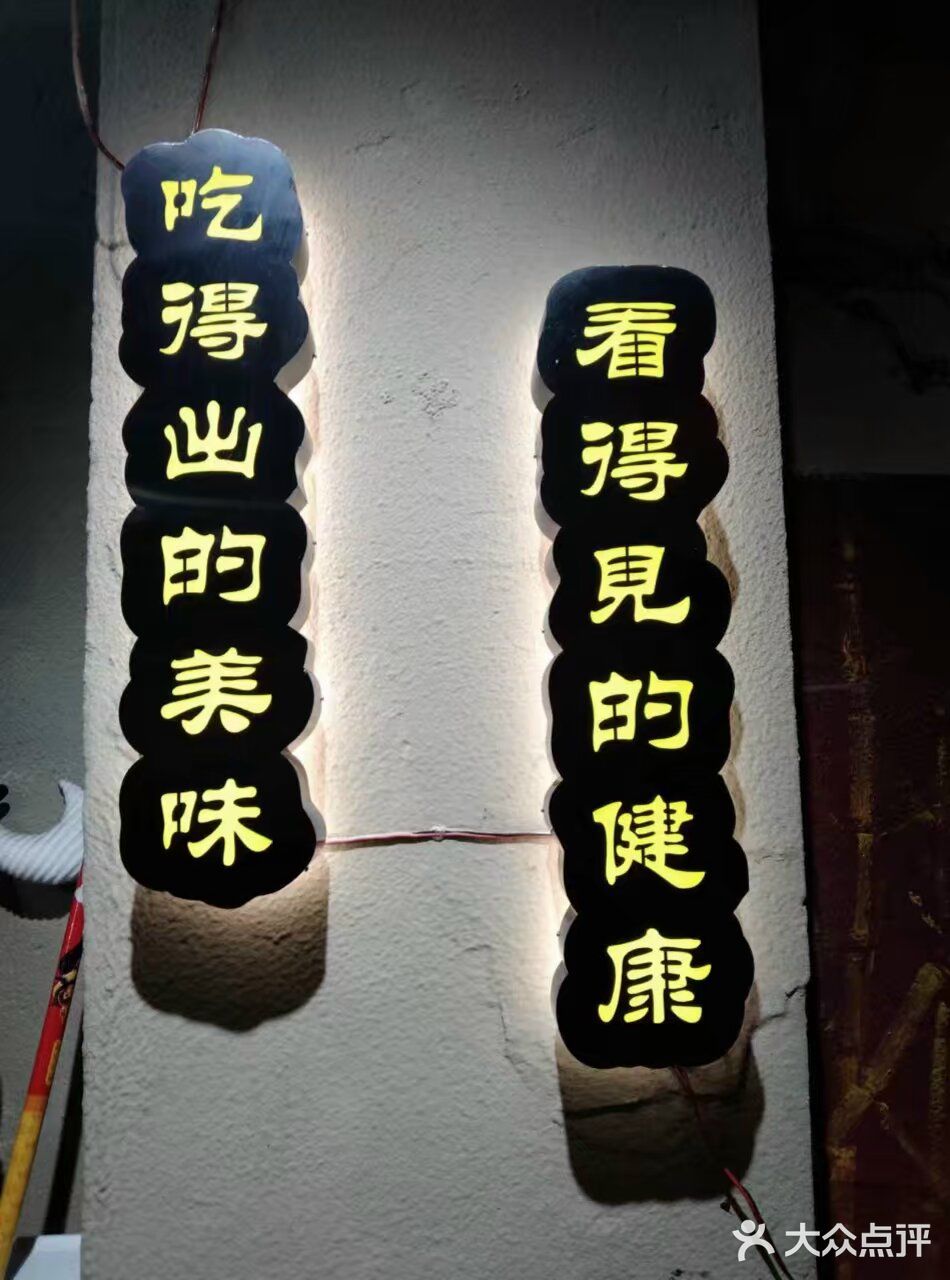 吃得出的美味
看得見的健康
大众点评